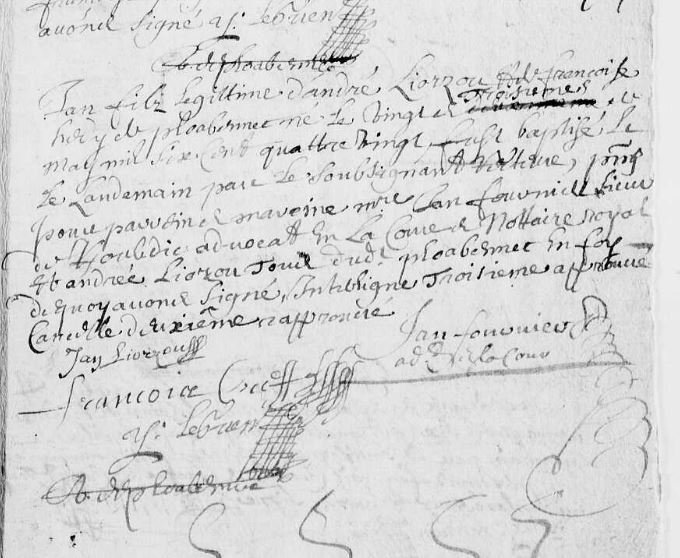 avons signé as: LeGuen
R. de ploabennec
Jan filz legittime d'andré Liorzou et de francoise
hery de ploabennec né le vingt et troisieme de
may mil six cent quattre vingt fust baptisé le
le Landemain par le soubsignant Recteur,
pour parrain et maraine mre Jan fouvnier sieur
de advocatt en la Cour et Nottaire royal
et andrée Liorzou Tous dudt ploabennec en foy
de quoy avons signé, interligne Troisieme approuvé
Cancellé deuxiême rapprouvé
Jan fouvnier
Jan Liorzou
ad en la Cour
francoise
as: LeGuen
R. de ploabennec